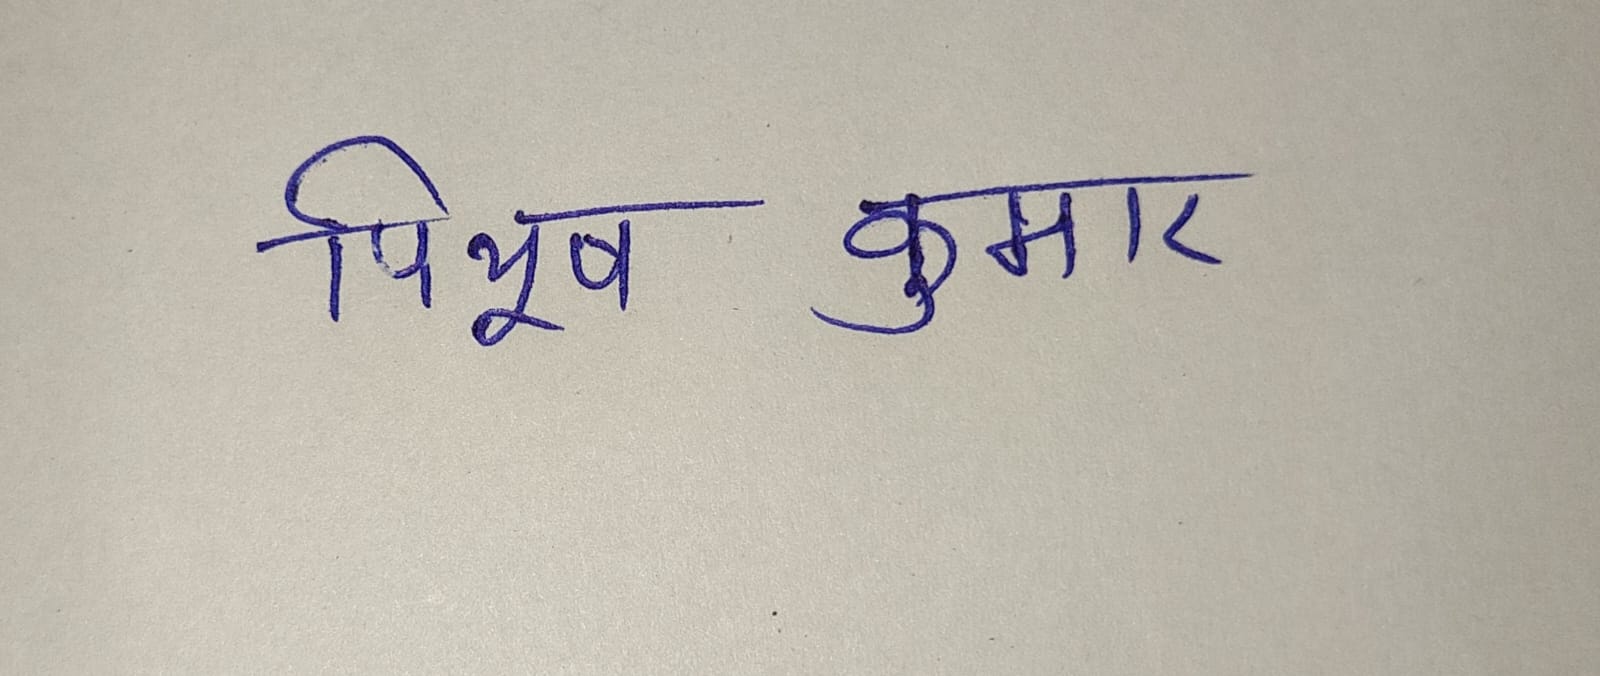 पियूष कुमार